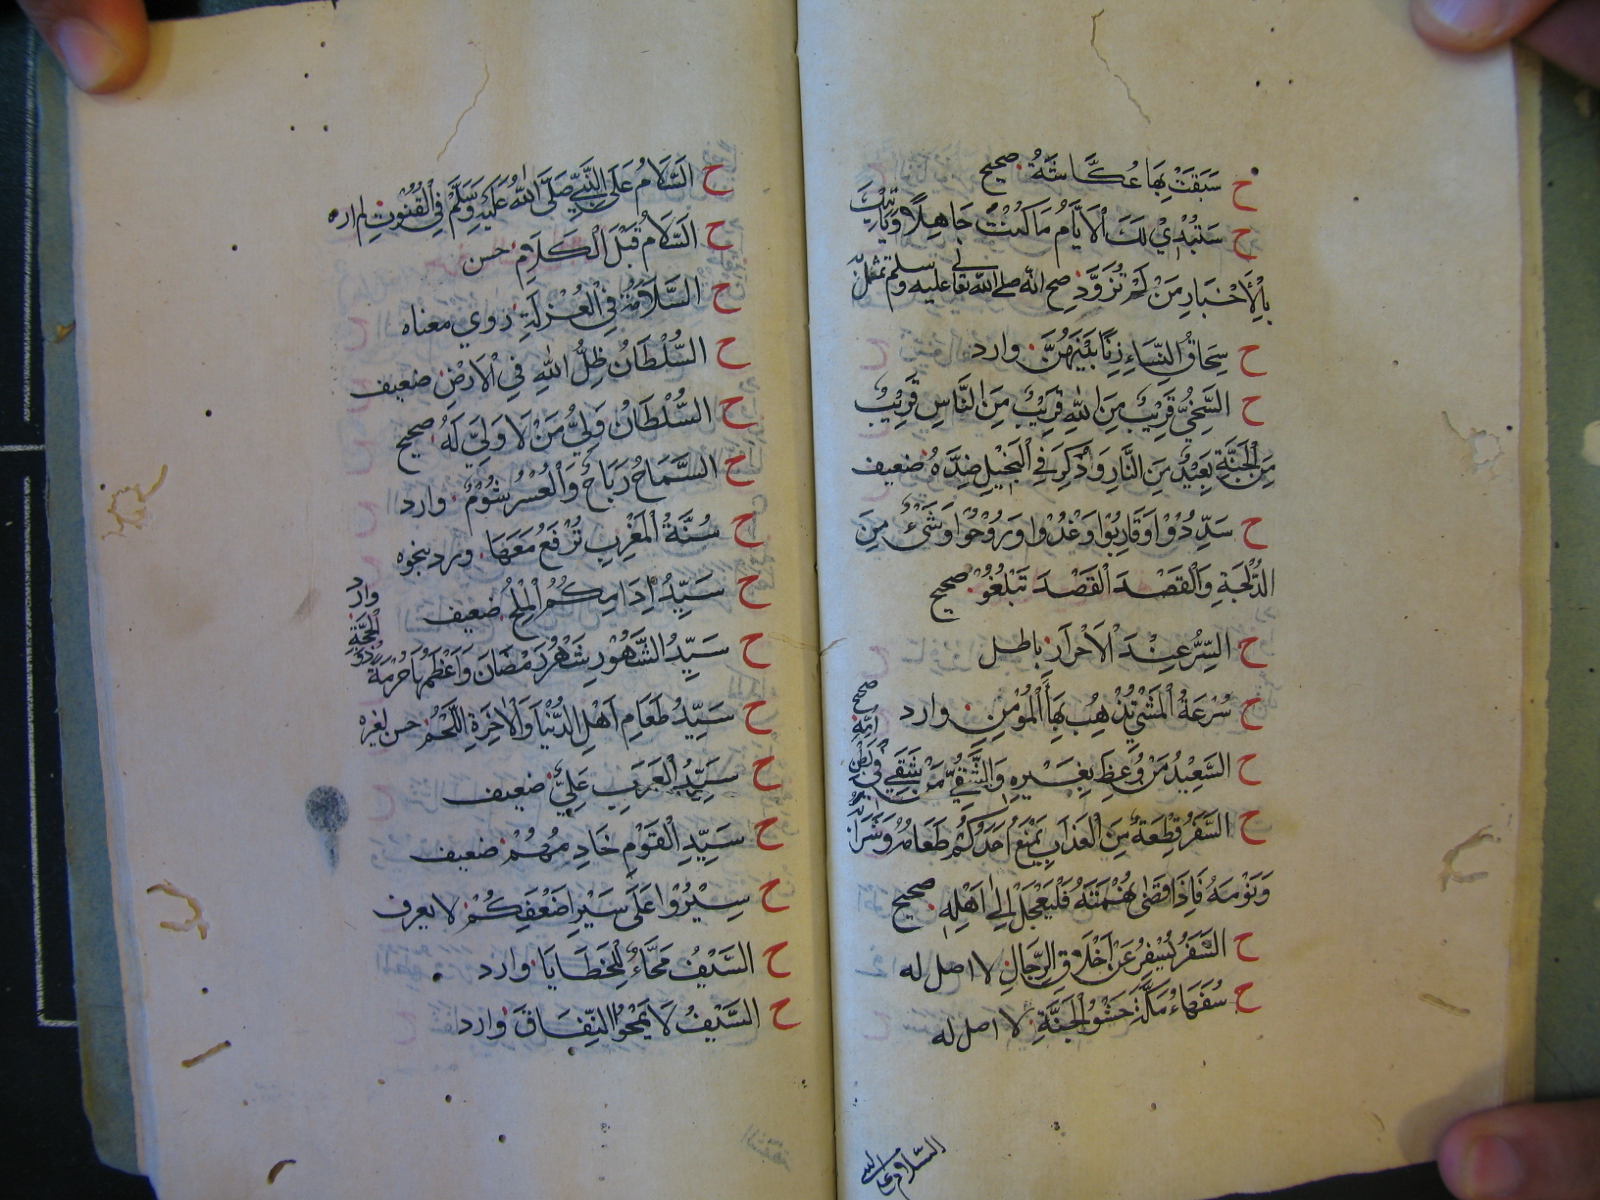 ح سَبَقَكَ بِهَا عُكَّاشَةُ صحيح
ح سَتُبْدِي لَكَ الْاَيَّامُ مَا كُنْتَ جَاهِلًا وَيَأْتِيكَ
بِالْأَخْبَارِ مَنْ لَمْ تُزَوِّدِ صح انه صلى الله تعالى عليه وسلم تمثل به
ح سِحَاقُ النِّسَاءِ زِنًا بَيْنَهُنَّ وارد
ح السَّخِيُّ قَرِيْبٌ مِنَ اللهِ قَرِيْبٌ مِنَ النَّاسِ قَرِيْبٌ
مِنَ الْجَنَّةِ بَعِيْدٌ مِنَ النَّارِ وَذُكِرَ فِي الْبَخِيْلِ ضِدَّهُ ضعيف
ح سَدِّدُوْا وَقَارِبُوْا وَغْدُوا وَرُوْحُوْا وَشَيْءٌ مِنَ
الدُّلْجَةِ وَالْقَصْدَ الْقَصْدَ تَبْلُغُوْا صحيح
ح السِّرُّ عِنْدَ الْاَحْرَارِ باطل
ح سُرْعَةُ الْمَشْيِ تُذْهِبُ بِهَاءَ الْمُؤْمِنِ وارد
ح السَّعِيْدُ مَنْ وُعِظَ بِغَيْرِهِ وَالشَّقِيُّ مَنْ شَقِيَ فِي بَطْنِ اُمِّهِ صحيح
ح السَّفَرُ قِطْعَةٌ مِنَ الْعَذَابِ يَمْنَعُ اَحَدَكُمْ طَعَامَهُ وَشَرَابَهُ
وَنَوْمَهُ فَاِذَا قَضٰى نُهْمَتَهُ فَلْيَعْجَلْ اِلٰى اَهْلِهِ صحيح
ح السَّفَرُ يُسْفِرُ عَنْ اَخْلَاقِ الرِّجَالِ لا اصل له
ح سُفَهَاءُ مَكَّةَ حَشْوُ الْجَنَّةِ لا اصل له
السلام على
ح السَّلَامُ عَلَى النَّبِيِّ صَلَّى اللهُ عَلَيْهِ وَسَلَّمَ فِي الْقُنُوْتِ لم اره
ح السَّلَامُ قَبْلَ الْكَلَامِ حسن
ح السَّلَامَةُ فِي الْعُزْلَةِ روي معناه
ح السُّلْطَانُ ظِلُّ اللهِ فِي الْاَرْضِ ضعيف
ح السُّلْطَانُ وَلِيُّ مَنْ لَا وَلِيَّ لَهُ صحيح
ح السَّمَاحُ رَبَاحٌ وَالْعُسْرُ شُوْمٌ وارد
ح سُنَّةُ الْمَغْرِبِ تُرْفَعُ مَعَهَا ورد بنحوه
ح سَيِّدُ اِدَامِكُمُ الْمِلْحُ ضعيف
ح سَيِّدُ الشُّهُوْرِ شَهْرُ رَمَضَانَ وَاَعْظَمُهَا حُرْمَةً ذُو الْحِجَّةِ وارد
ح سَيِّدُ طَعَامِ اَهْلِ الدُّنْيَا وَالْاٰخِرَةِ اللَّحْمُ حسن لغيره
ح سَيِّدُ الْعَرَبِ عَلِيٌّ ضعيف
ح سَيِّدُ الْقَوْمِ خَادِمُهُمْ ضعيف
ح سِيْرُوْا عَلٰى سَيْرِ اَضْعَفِكُمْ لا يعرف
ح السَّيْفُ مَحَّاءٌ لِلْخَطَايَا وارد
ح السَّيْفُ لَا يَمْحُو النِّفَاقَ وارد